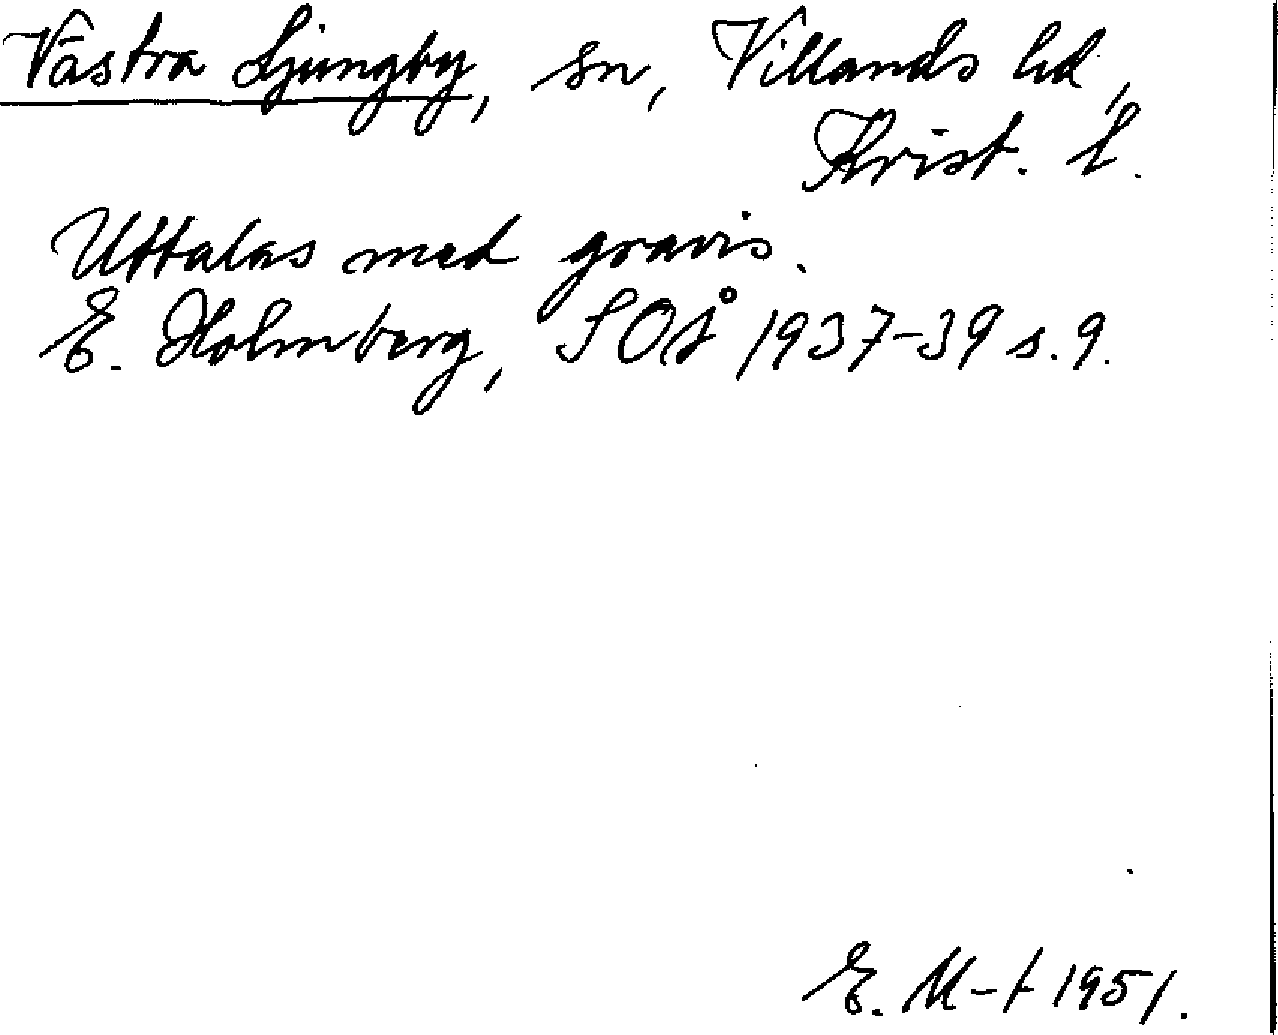 Västra Ljungby, sn, Villands hd,
Krist. l.
Uttalas med gravis.
E. Holmberg, SOÅ 1937-39 s. 9.
E. M-t 1951.